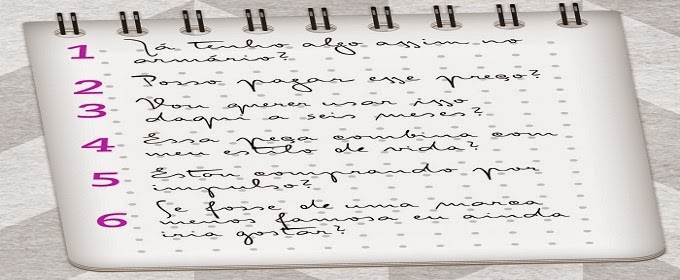 1 Já tenho algo assim no
armário?
2 Posso pagar esse preço?
3 Vou querer usar isso
daqui a seis meses?
4 Essa peça combina com
meu estilo de vida?
5 Estou comprando por
impulso?
6 Se fosse de uma marca
menos famosa eu ainda
iria gostar?